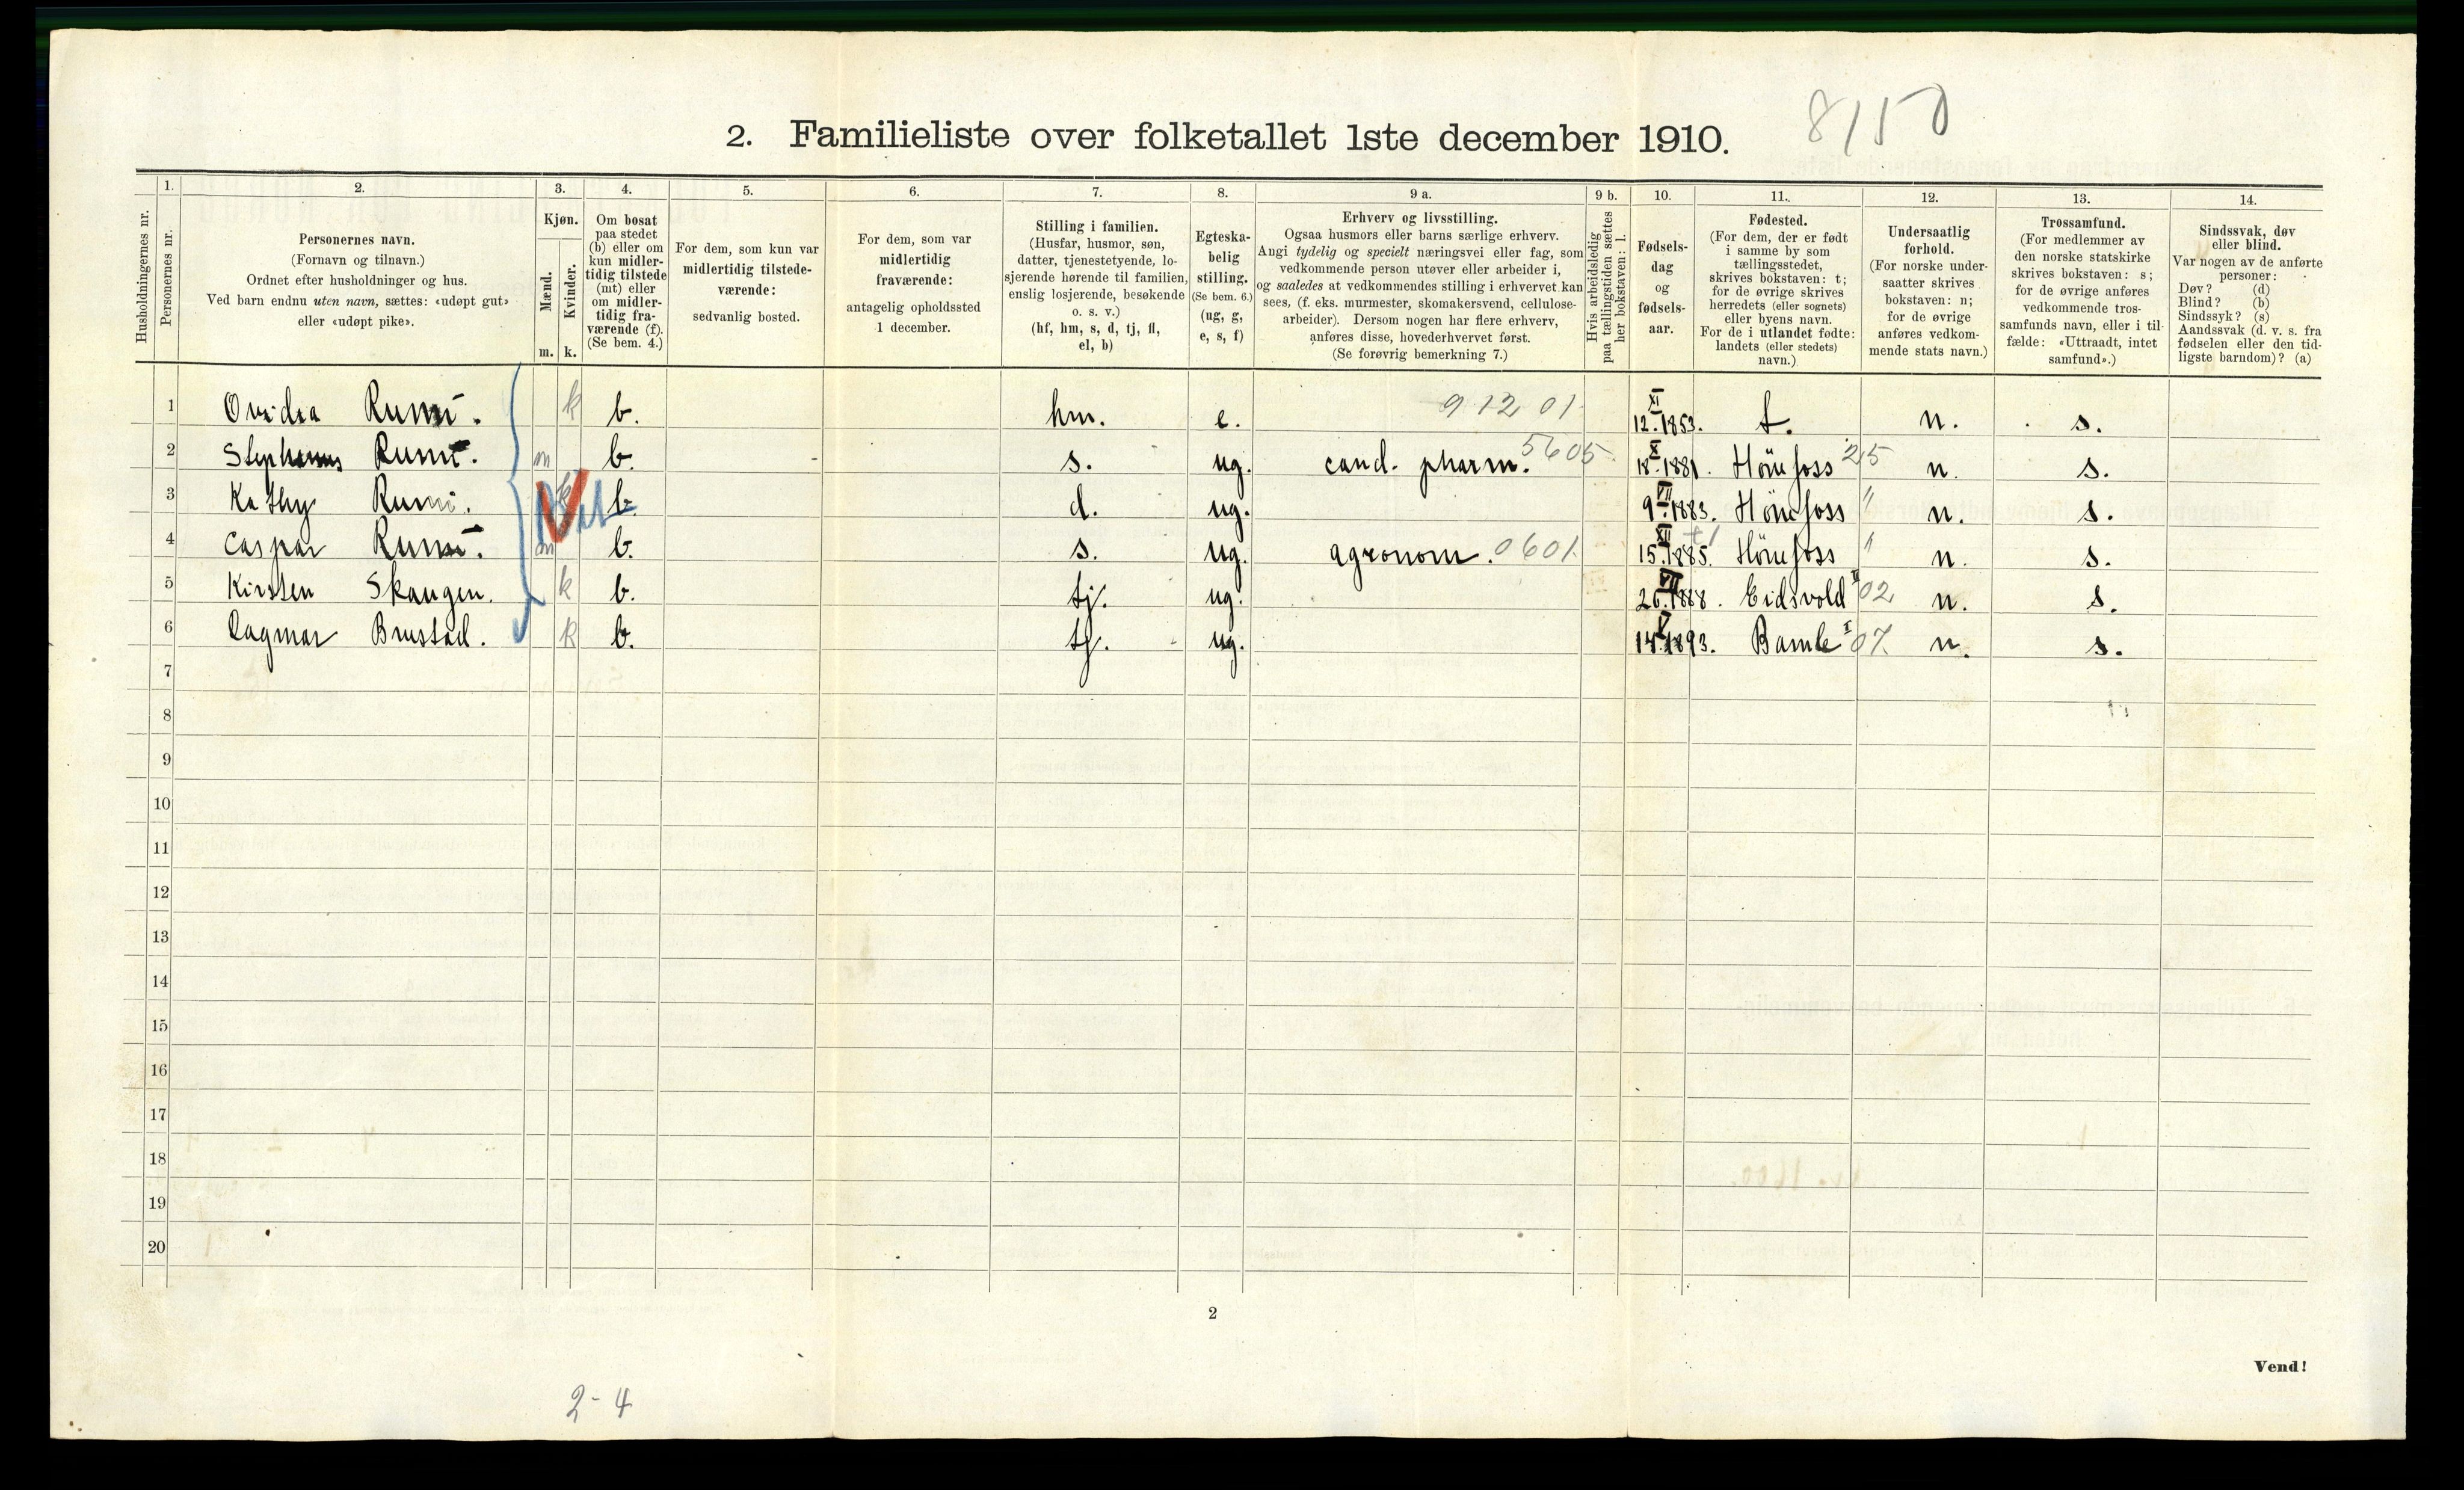 8/50
2. Familieliste over folketallet 1ste december 1910.
Husholdningernes nr.
1. Personernes nr.
2. Personernes navn. (Fornavn og tilnavn.) Ordnet efter husholdninger og hus. Ved barn endnu uten navn, sættes: «udøpt gut» eller «udøpt pike».
3. Kjøn. Mænd. m. Kvinder. k.
4. Om bosat paa stedet (b) eller om kun midler-tidig tilstede (mt) eller om midler-tidig fra-værende (f). (Se bem. 4.)
5. For dem, som kun var midlertidig tilstede-værende: sedvanlig bosted.
6. For dem, som var midlertidig fraværende: antagelig opholdssted 1 december.
7. Stilling i familien. (Husfar, husmor, søn, datter, tjenestetyende, lo-sjerende hørende til familien, enslig losjerende, besøkende o. s. v.) (hf, hm, s, d, tj, fl, el, b)
8. Egteska-belig stilling. (Se bem. 6.) (ug, g, e, s, f)
9 a. Erhverv og livsstilling. Ogsaa husmors eller barns særlige erhverv. Angi tydelig og specielt næringsvei eller fag, som vedkommende person utøver eller arbeider i, og saaledes at vedkommendes stilling i erhvervet kan sees, (f. eks. murmester, skomakersvend, cellulose-arbeider). Dersom nogen har flere erhverv, anføres disse, hovederhvervet først. (Se forøvrig bemerkning 7.)
9 b. Hvis arbeidsledig paa tællingstiden sættes her bokstaven: l.
10. Fødsels-dag og fødsels-aar.
11. Fødested. (For dem, der er født i samme by som tællingsstedet, skrives bokstaven: t; for de øvrige skrives herredets (eller sognets) eller byens navn. For de i utlandet fødte: landets (eller stedets) navn.)
12. Undersaatlig forhold. (For norske under-saatter skrives bokstaven: n; for de øvrige anføres vedkom-mende stats navn.)
13. Trossamfund. (For medlemmer av den norske statskirke skrives bokstaven: s; for de øvrige anføres vedkommende tros-samfunds navn, eller i til-fælde: «Uttraadt, intet samfund».)
14. Sindssvak, døv eller blind. Var nogen av de anførte personer: Døv? (d) Blind? (b) Sindssyk? (s) Aandssvak (d. v. s. fra fødselen eller den tid-ligste barndom)? (a)
1 Ovidia k b. hm. e. 9 12 01 12.XI.1853. t. n. s.
2 m b. s. ug. cand. pharm. 5605 18.X.1881. Hönefoss 25 n. s.
3 Kathy k b. d. ug. 9.VII.1883. Hönefoss " n. s.
4 Caspar m b. s. ug. agronom. 0601. 15.XII.1885. Hönefoss " n. s.
5 Kirsten Skaugen. k b. tj. ug. 26.VII.1888. Eidsvold 02 n. s.
6 Dagmar Brustad. k b. tj. ug. 14.V.1893. Bamle 07. n. s.
7
8
9
10
11
12
13
14
15
16
17
18
19
20
2
Vend!
2-4